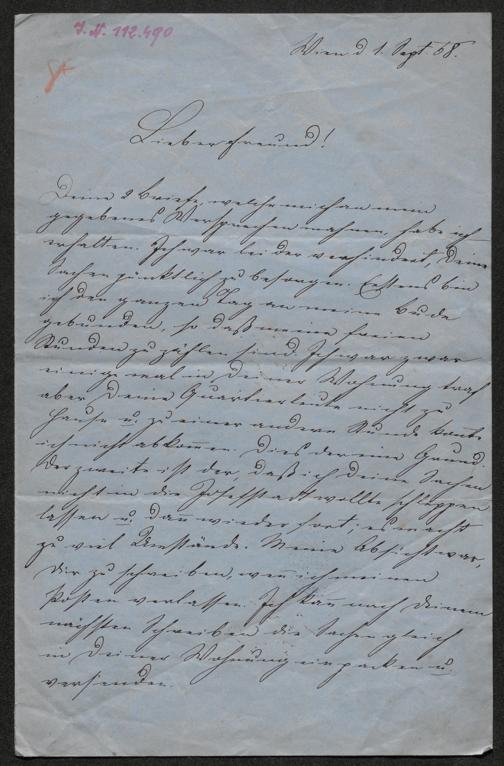 I. N. 112.490
Wien d 1. Sept. 68.
Lieber Freund!
Deine 2 Briefe, welche mich an mein
gegebenes Versprechen mahnen, habe ich
erhalten. Ich war leider verhindert, Deine
Sachen pünktlich zu besorgen. Erstens bin
ich den ganzen Tag an meine Bude
gebunden, so daß meine freien
Stunden zu zählen sind. Ich war zwar
einige mal in Deiner Wohnung traf
aber Deine Quartierleute nicht zu
Hause u. zu einer andern Stunde konnte
ich nicht abkom̅en. Dies der eine Grund.
Der zweite ist der, daß ich Deine Sachen
nicht in die Josefstadt wollte schleppen
lassen u. dan̅ wieder fort; es macht
zu viel Umstände. Meine Absicht war,
Dir zu schreiben, wen̅ ich meinen
Posten verlassen. Ich kan̅ nach Deinem
nächsten Schreiben die Sachen gleich
in Deiner Wohnung einpacken u.
versenden.